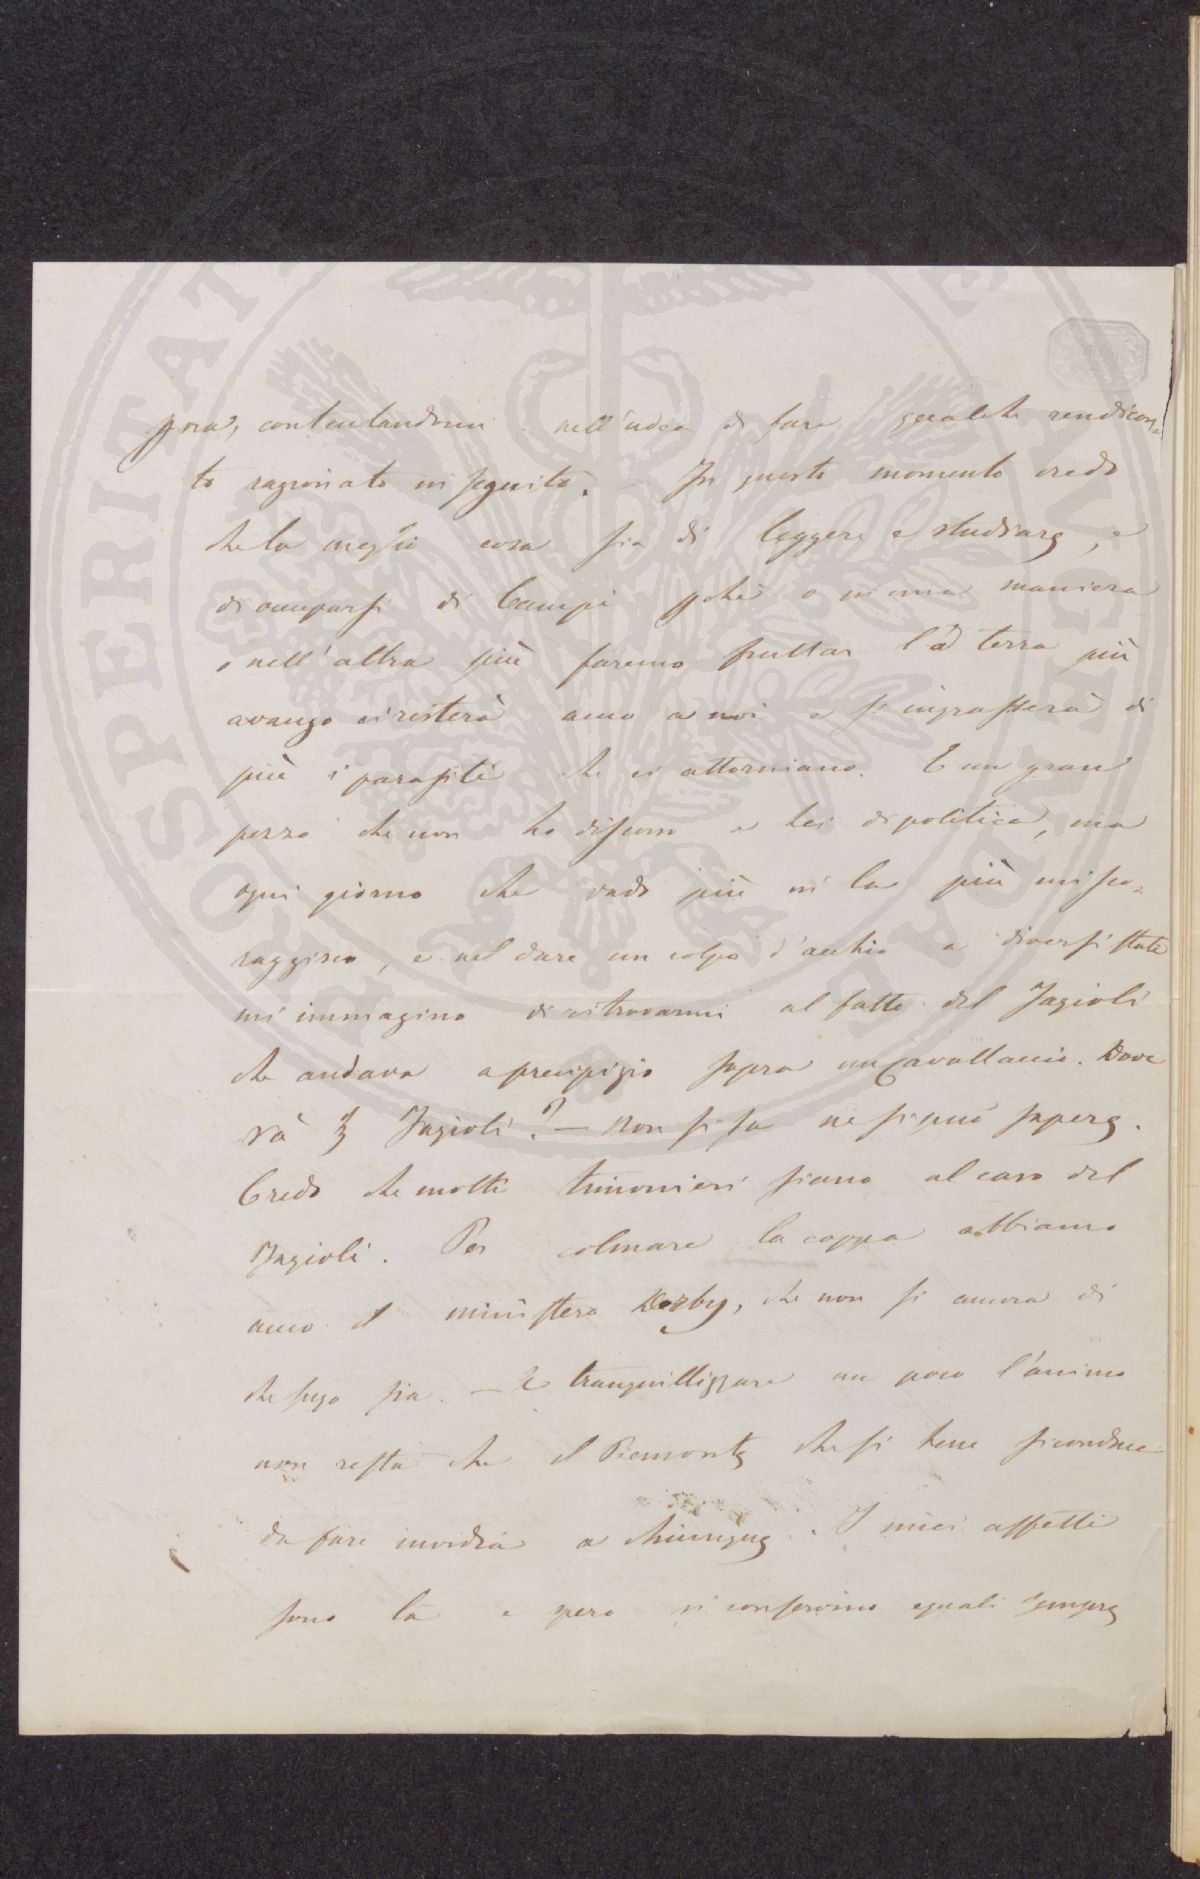 pria, contentandomi nell'idea di fare qualche rendicon-
to ragionato in seguito. – In questo momento credo
che la meglio cosa sia di leggere e studiare, e
di occuparsi di Campi pchè o in una maniera
o nell'altra più faremo fruttar la terra più
avanzo ci resterà anco a noi e s'ingrasserà di
più i parasiti che ci attorniano. È un gran
pezzo che non ho discorso a lei di politica, ma
ogni giorno che vado più in la più mi sco-
raggisco, e nel dare un colpo d'occhio a diversi stati
mi immagino di ritrovarmi al fatto del Fagioli
che andava a precipizio sopra un Cavallaccio. Dove
và Fagioli? – Non si sa ne si può sapere.
Credo che molti timonieri siano al caso del
Fagioli. Per colmare la coppa abbiamo
anco il ministero Derby, che non si ancora di
che sugo sia. – A tranquillizzare un poco l'animo
non resta che il Piemonte che si bene si conduce
da fare invidia a chiunque. I miei affetti
sono là e spero si conservino eguali sempre
PROSPERITATE